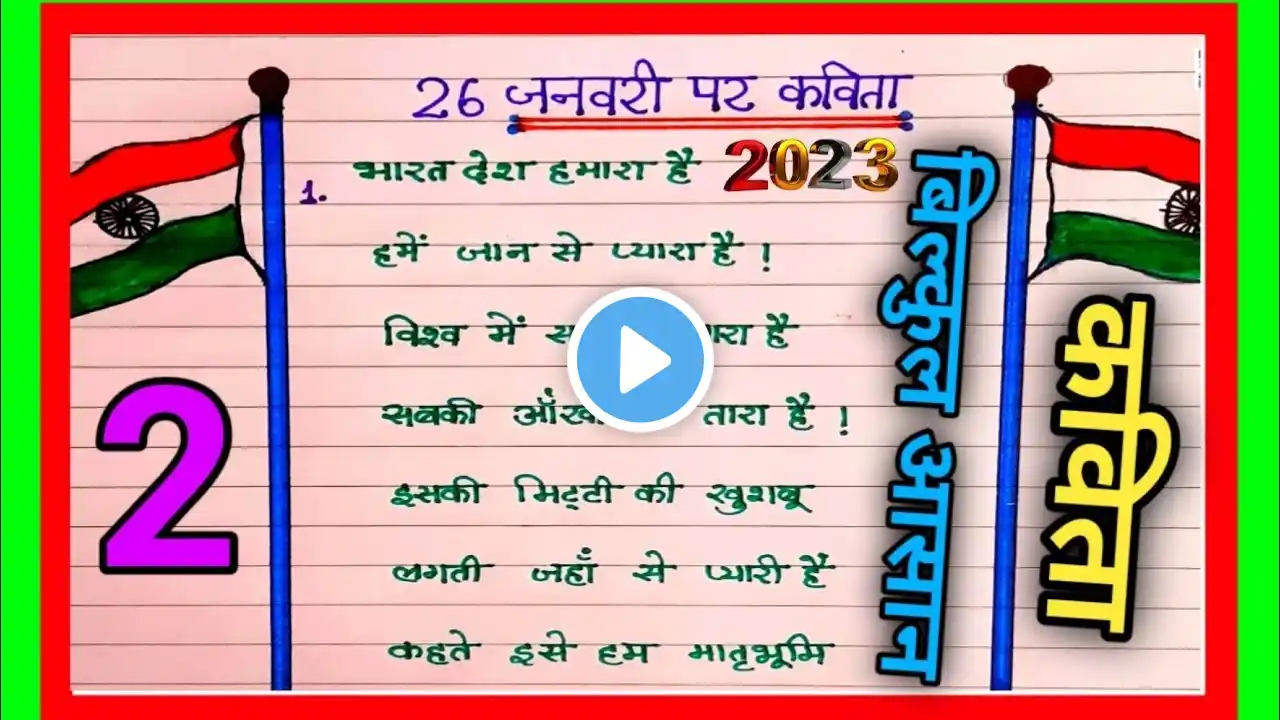 26 जनवरी पर कविता
2023
1. भारत देश हमारा है
हमें जान से प्यारा है !
विश्व में है
सबकी तारा है !
इसकी मिट्टी की खुशबू
लगती जहाँ से प्यारी है
कहते इसे हम मातृभूमि
2
बिल्कुल आसान
कविता